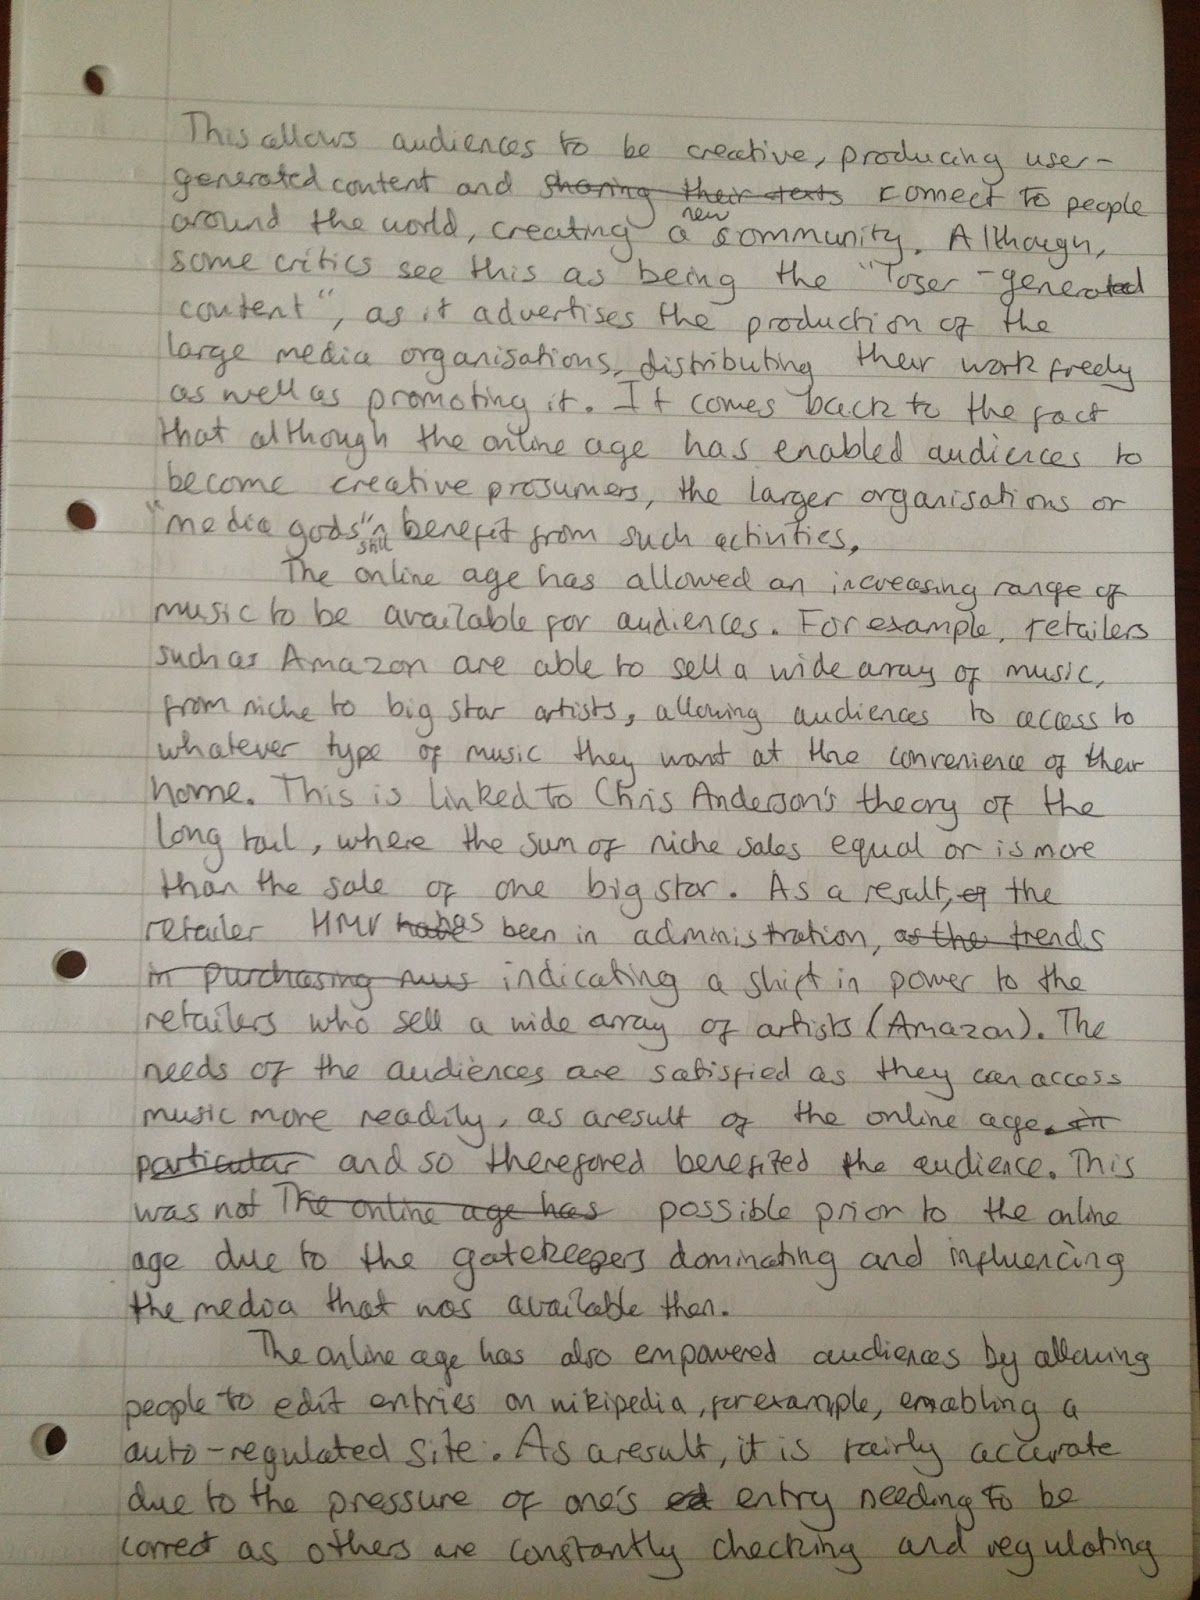 This allows audiences to be creative, producing user-
generated content and ~~sharing their texts~~ connect to people
around the world, creating a new community. Although,
some critics see this as being the "loser-generated
content", as it advertises the production of the
large media organisations, distributing their work freely
as well as promoting it. It comes back to the fact
that although the online age has enabled audiences to
become creative prosumers, the larger organisations or
"media gods" still benefit from such activities.
The online age has allowed an increasing range of
music to be available for audiences. For example, retailers
such as Amazon are able to sell a wide array of music,
from niche to big star artists, allowing audiences to access to
whatever type of music they want at the convenience of their
home. This is linked to Chris Anderson's theory of the
long tail, where the sum of niche sales equal or is more
than the sale of one big star. As a result, ~~of~~ the
retailer HMV has been in administration, ~~as the trends~~
~~in purchasing mus~~ indicating a shift in power to the
retailers who sell a wide array of artists (Amazon). The
needs of the audiences are satisfied as they can access
music more readily, as a result of the online age. ~~in~~
~~particular~~ and so therefored benefited the audience. This
was not ~~The online age has~~ possible prior to the online
age due to the gatekeepers dominating and influencing
the media that was available then.
The online age has also empowered audiences by allowing
people to edit entries on wikipedia, for example, enabling a
auto-regulated site. As a result, it is fairly accurate
due to the pressure of one's ~~ed~~ entry needing to be
correct as others are constantly checking and regulating